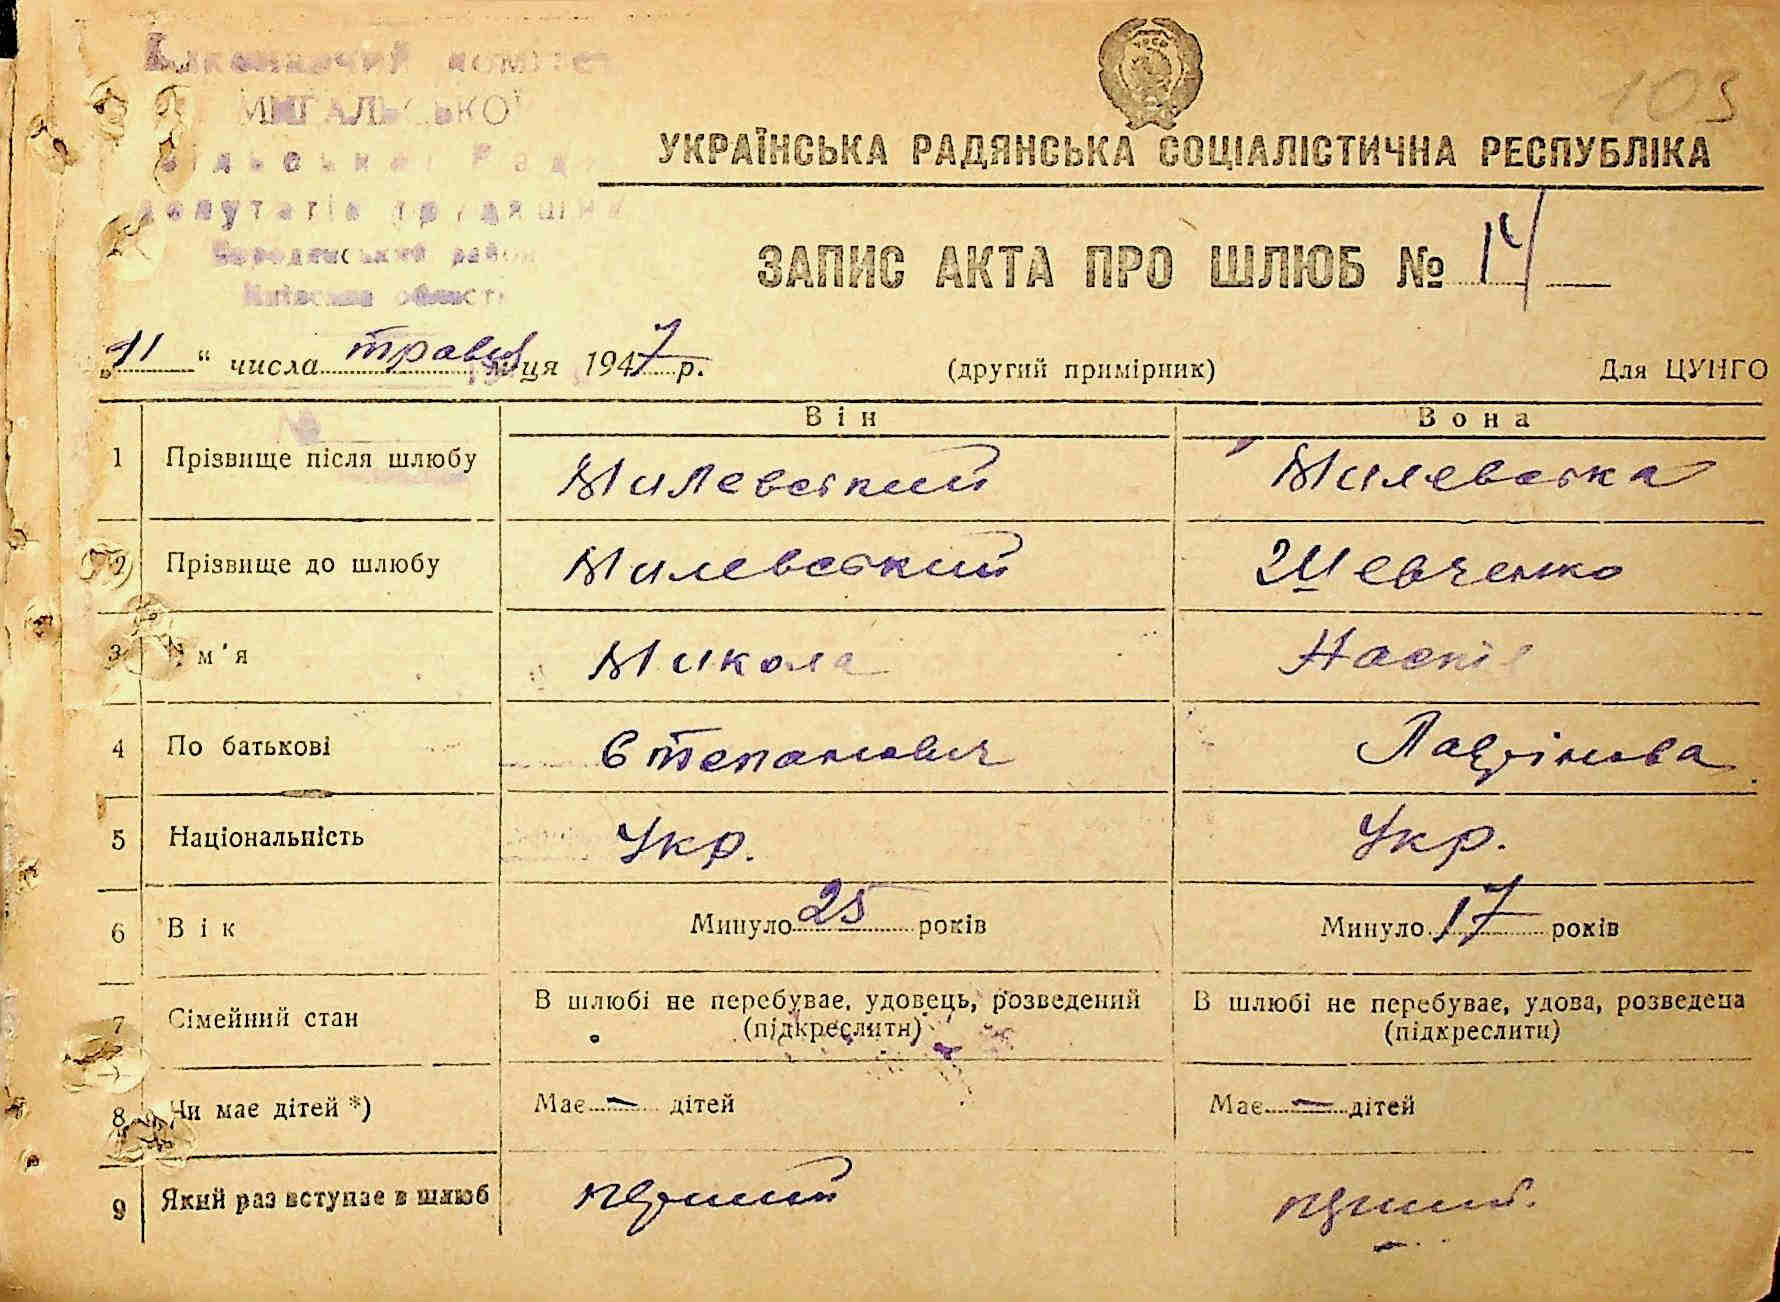 Виконавчий комітет
МИГАЛЬСЬКОЇ
сільської Ради
депутатів трудящих
Бородянський район
Київська область
103
УКРАЇНСЬКА РАДЯНСЬКА СОЦІАЛІСТИЧНА РЕСПУБЛІКА
ЗАПИС АКТА ПРО ШЛЮБ № 14
„11“ числа травня м-ця 1947 р. (другий примірник) Для ЦУНГО
Він Вона
1 Прізвище після шлюбу Милевський Милевська
2 Прізвище до шлюбу Милевський Шевченко
3 Ім'я Микола Настія
4 По батькові Степанович Лаврінова
5 Національність Укр. Укр.
6 Вік Минуло 25 років Минуло 17 років
7 Сімейний стан В шлюбі не перебуває, удовець, розведений В шлюбі не перебуває, удова, розведена
(підкреслити) (підкреслити)
8 Чи має дітей *) Має — дітей Має — дітей
9 Який раз вступає в шлюб перший перший.